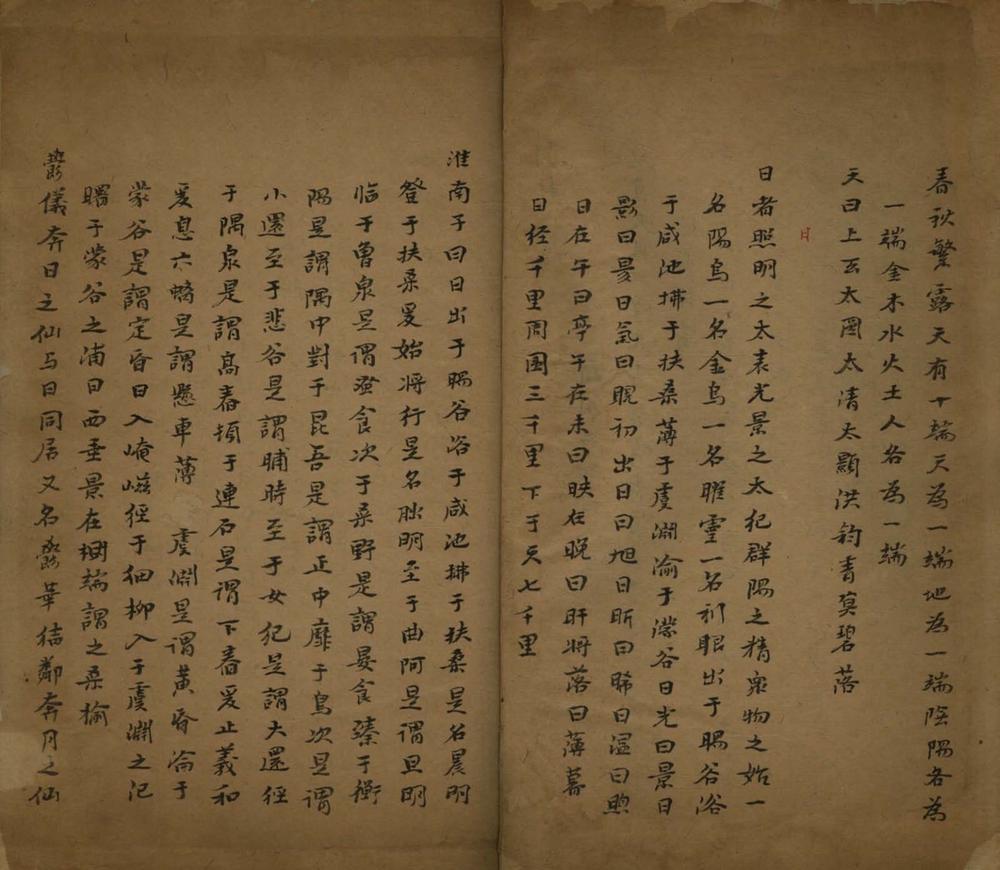 春秋繁露天有十端天為一端地為一端陰陽各為
一端金木水火土人各為一端
天曰上玄太圓太清太顥洪鈞青冥碧落
日
日者照明之太表光景之太紀群陽之精衆物之始一
名陽烏一名金烏一名䀪靈一名利眼出于暘谷浴
于咸池拂于扶桑薄于虞淵淪于濛谷日光曰景日
影曰晷日氣曰晛初出日曰旭日昕曰晞日溫曰煦
日在午曰亭午在未曰昳在晚曰旰將落曰薄暮
日徑千里周圍三千里下于天七千里
淮南子曰日出于暘谷浴于咸池拂于扶桑是名晨明
登于扶桑爰始將行是名朏明至于曲阿是謂旦明
临于曾泉是谓蚤食次于桑野是謂晏食臻于衡
陽是謂隅中對于昆吾是謂正中靡于鳥次是謂
小還至于悲谷是謂晡時至于女紀是謂大還徑
于隅泉是謂高舂頓于連石是谓下舂爰止羲和
爰息六螭是謂懸車薄 虞淵是谓黃昏淪于
蒙谷是謂定昏日入崦嵫徑于细柳入于虞淵之汜
曙于蒙谷之浦日西垂景在樹端謂之桑榆
鬱儀奔日之仙与日同居又名鬱華结鄰奔月之仙